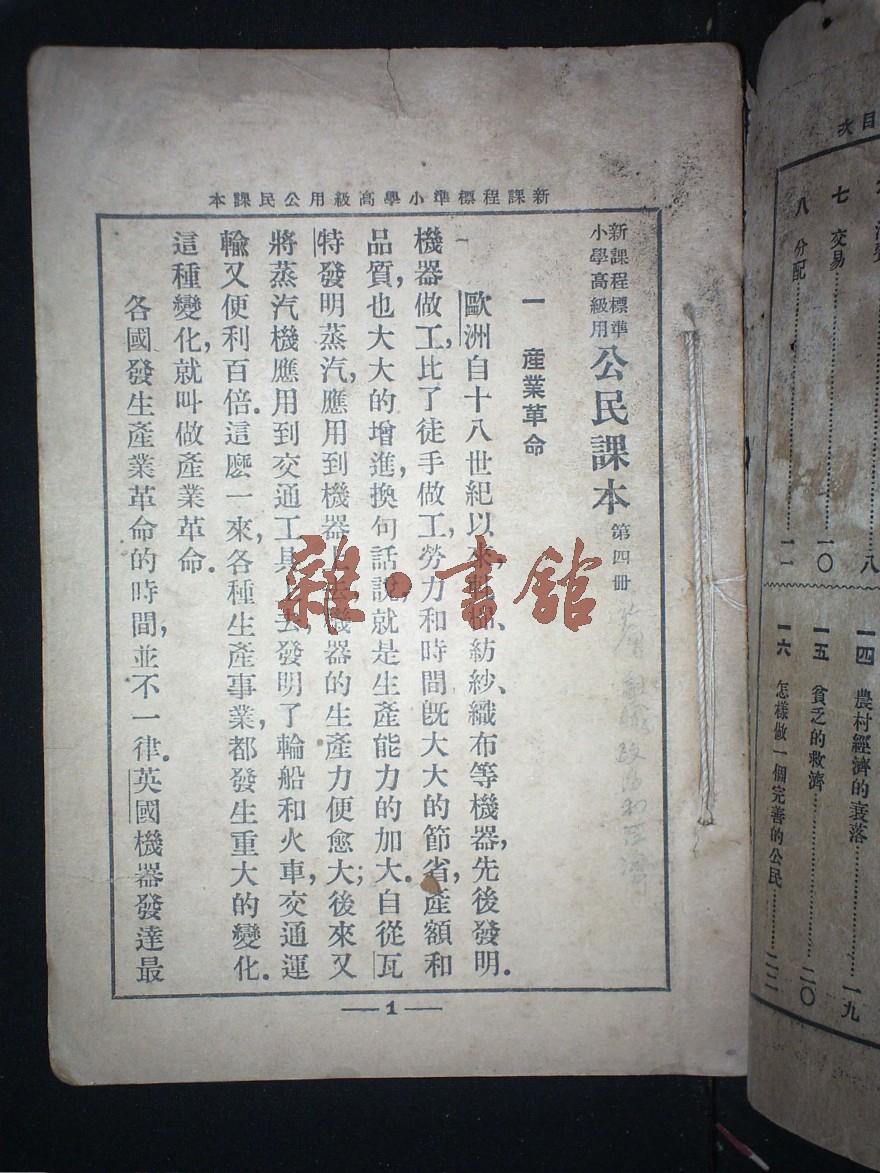 目次
八
七 交易……一〇
八 分配……一一
一四 農村經濟的衰落……一九
一五 貧乏的救濟……二〇
一六 怎樣做一個完善的公民……二二
新課程標準小學高級用公民課本
新課程標準
小學高級用
公民課本 第四冊
一 產業革命
歐洲自十八世紀以來,、紡紗、織布等機器,先後發明.
機器做工,比了徒手做工,勞力和時間旣大大的節省,產額和
品質,也大大的增進,換句話說,就是生產能力的加大.自從瓦
特發明蒸汽,應用到機器上去,機器的生產力便愈大;後來又
將蒸汽機應用到交通工具上去,發明了輪船和火車,交通運
輸又便利百倍.這麽一來,各種生產事業,都發生重大的變化.
這種變化,就叫做產業革命.
各國發生產業革命的時間,並不一律.英國機器發達最
—1—
雜·書館